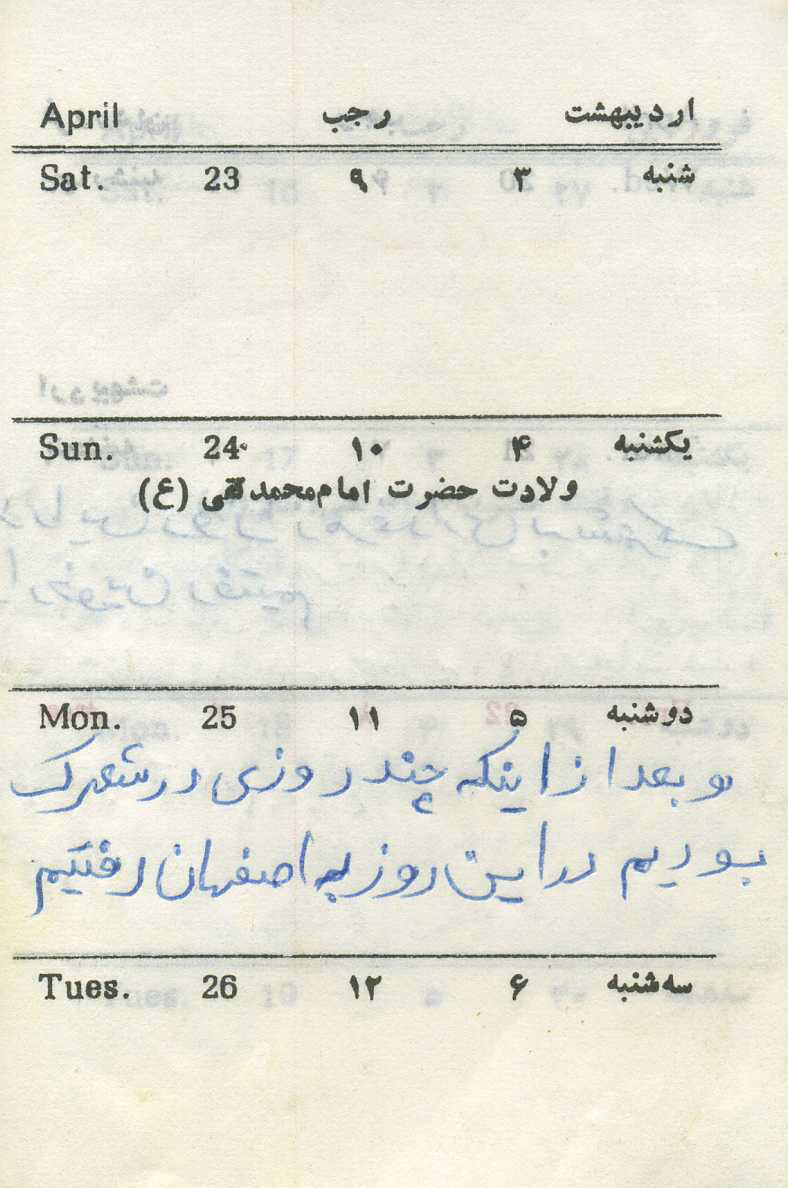 اردیبهشت رجب April
شنبه ۳ ۹ 23 Sat.
یکشنبه ۴ ۱۰ 24 Sun.
ولادت حضرت امام محمد تقی (ع)
دوشنبه ۵ ۱۱ 25 Mon.
و بعد از اینکه چند روزی در شهرک
بودیم در این روز به اصفهان رفتیم
سه شنبه ۶ ۱۲ 26 Tues.